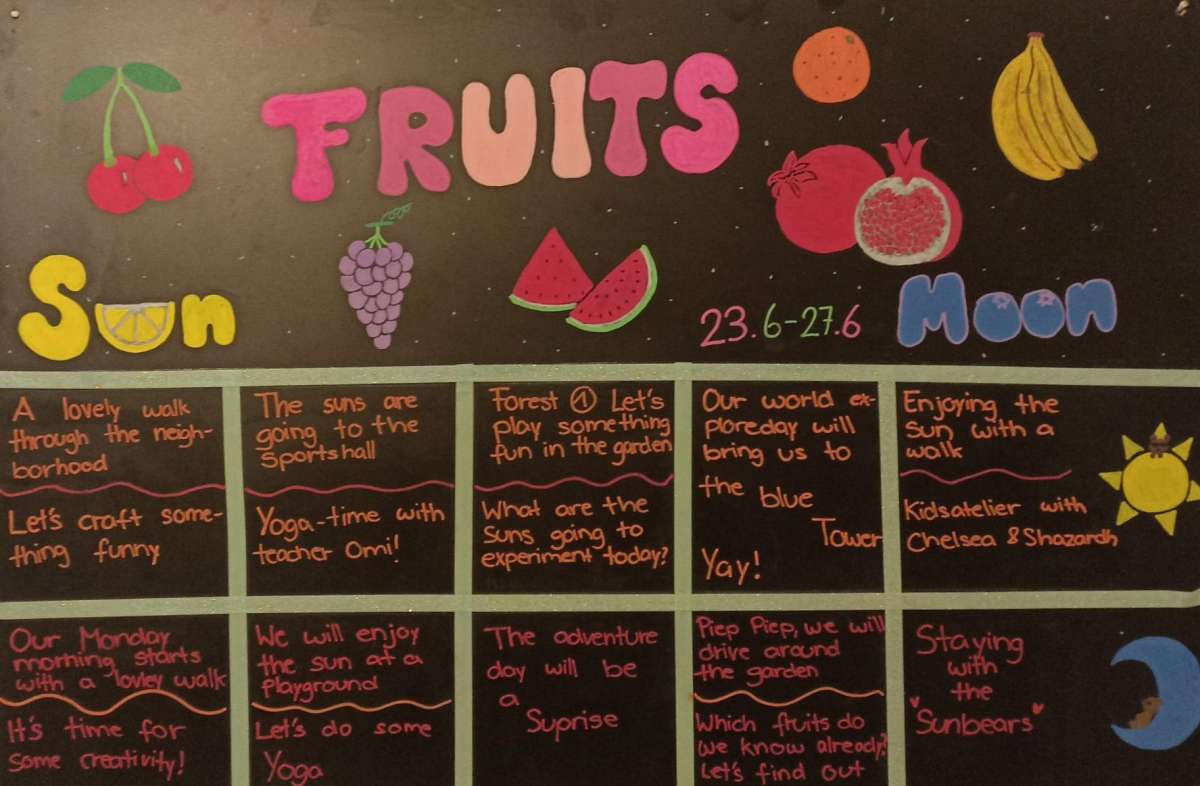 FRUITS
Sun
23.6-27.6
Moon
A lovely walk
through the neigh-
borhood
Let's craft some-
thing funny
The suns are
going to the
sportshall
Yoga-time with
teacher Omi!
Forest ① Let's
play something
fun in the garden
What are the
Suns going to
experiment today?
Our world ex-
ploreday will
bring us to
the blue
Tower
Yay!
Enjoying the
sun with a
walk
Kidsatelier with
Chelsea & Shazardh
Our Monday
morning starts
with a lovley walk
It's time for
some creativity!
We will enjoy
the sun at a
playground
Let's do some
Yoga
The adventure
day will be
a
Suprise
Piep Piep, we will
drive around
the garden
Which fruits do
we know already?
Let's find out
Staying
with
the
"Sunbears"